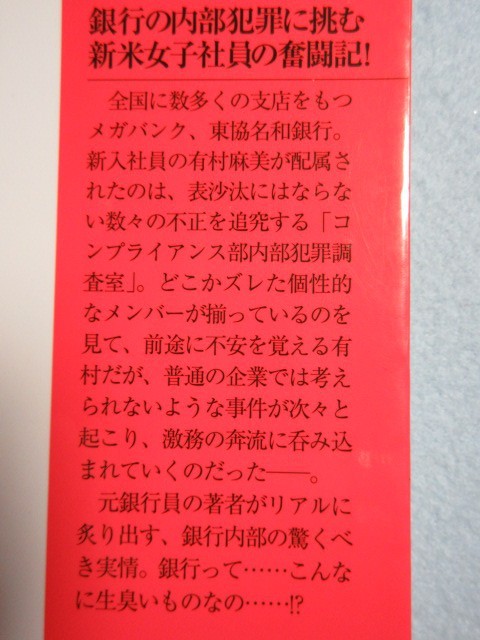 銀行の内部犯罪に挑む
新米女子社員の奮闘記!
全国に数多くの支店をもつ
メガバンク、東協名和銀行。
新入社員の有村麻美が配属さ
れたのは、表沙汰にはならな
い数々の不正を追究する「コ
ンプライアンス部内部犯罪調
査室」。どこかズレた個性的
なメンバーが揃っているのを
見て、前途に不安を覚える有
村だが、普通の企業では考え
られないような事件が次々と
起こり、激務の奔流に呑み込
まれていくのだった――。
元銀行員の著者がリアルに
炙り出す、銀行内部の驚くべ
き実情。銀行って……こんな
に生臭いものなの……!?